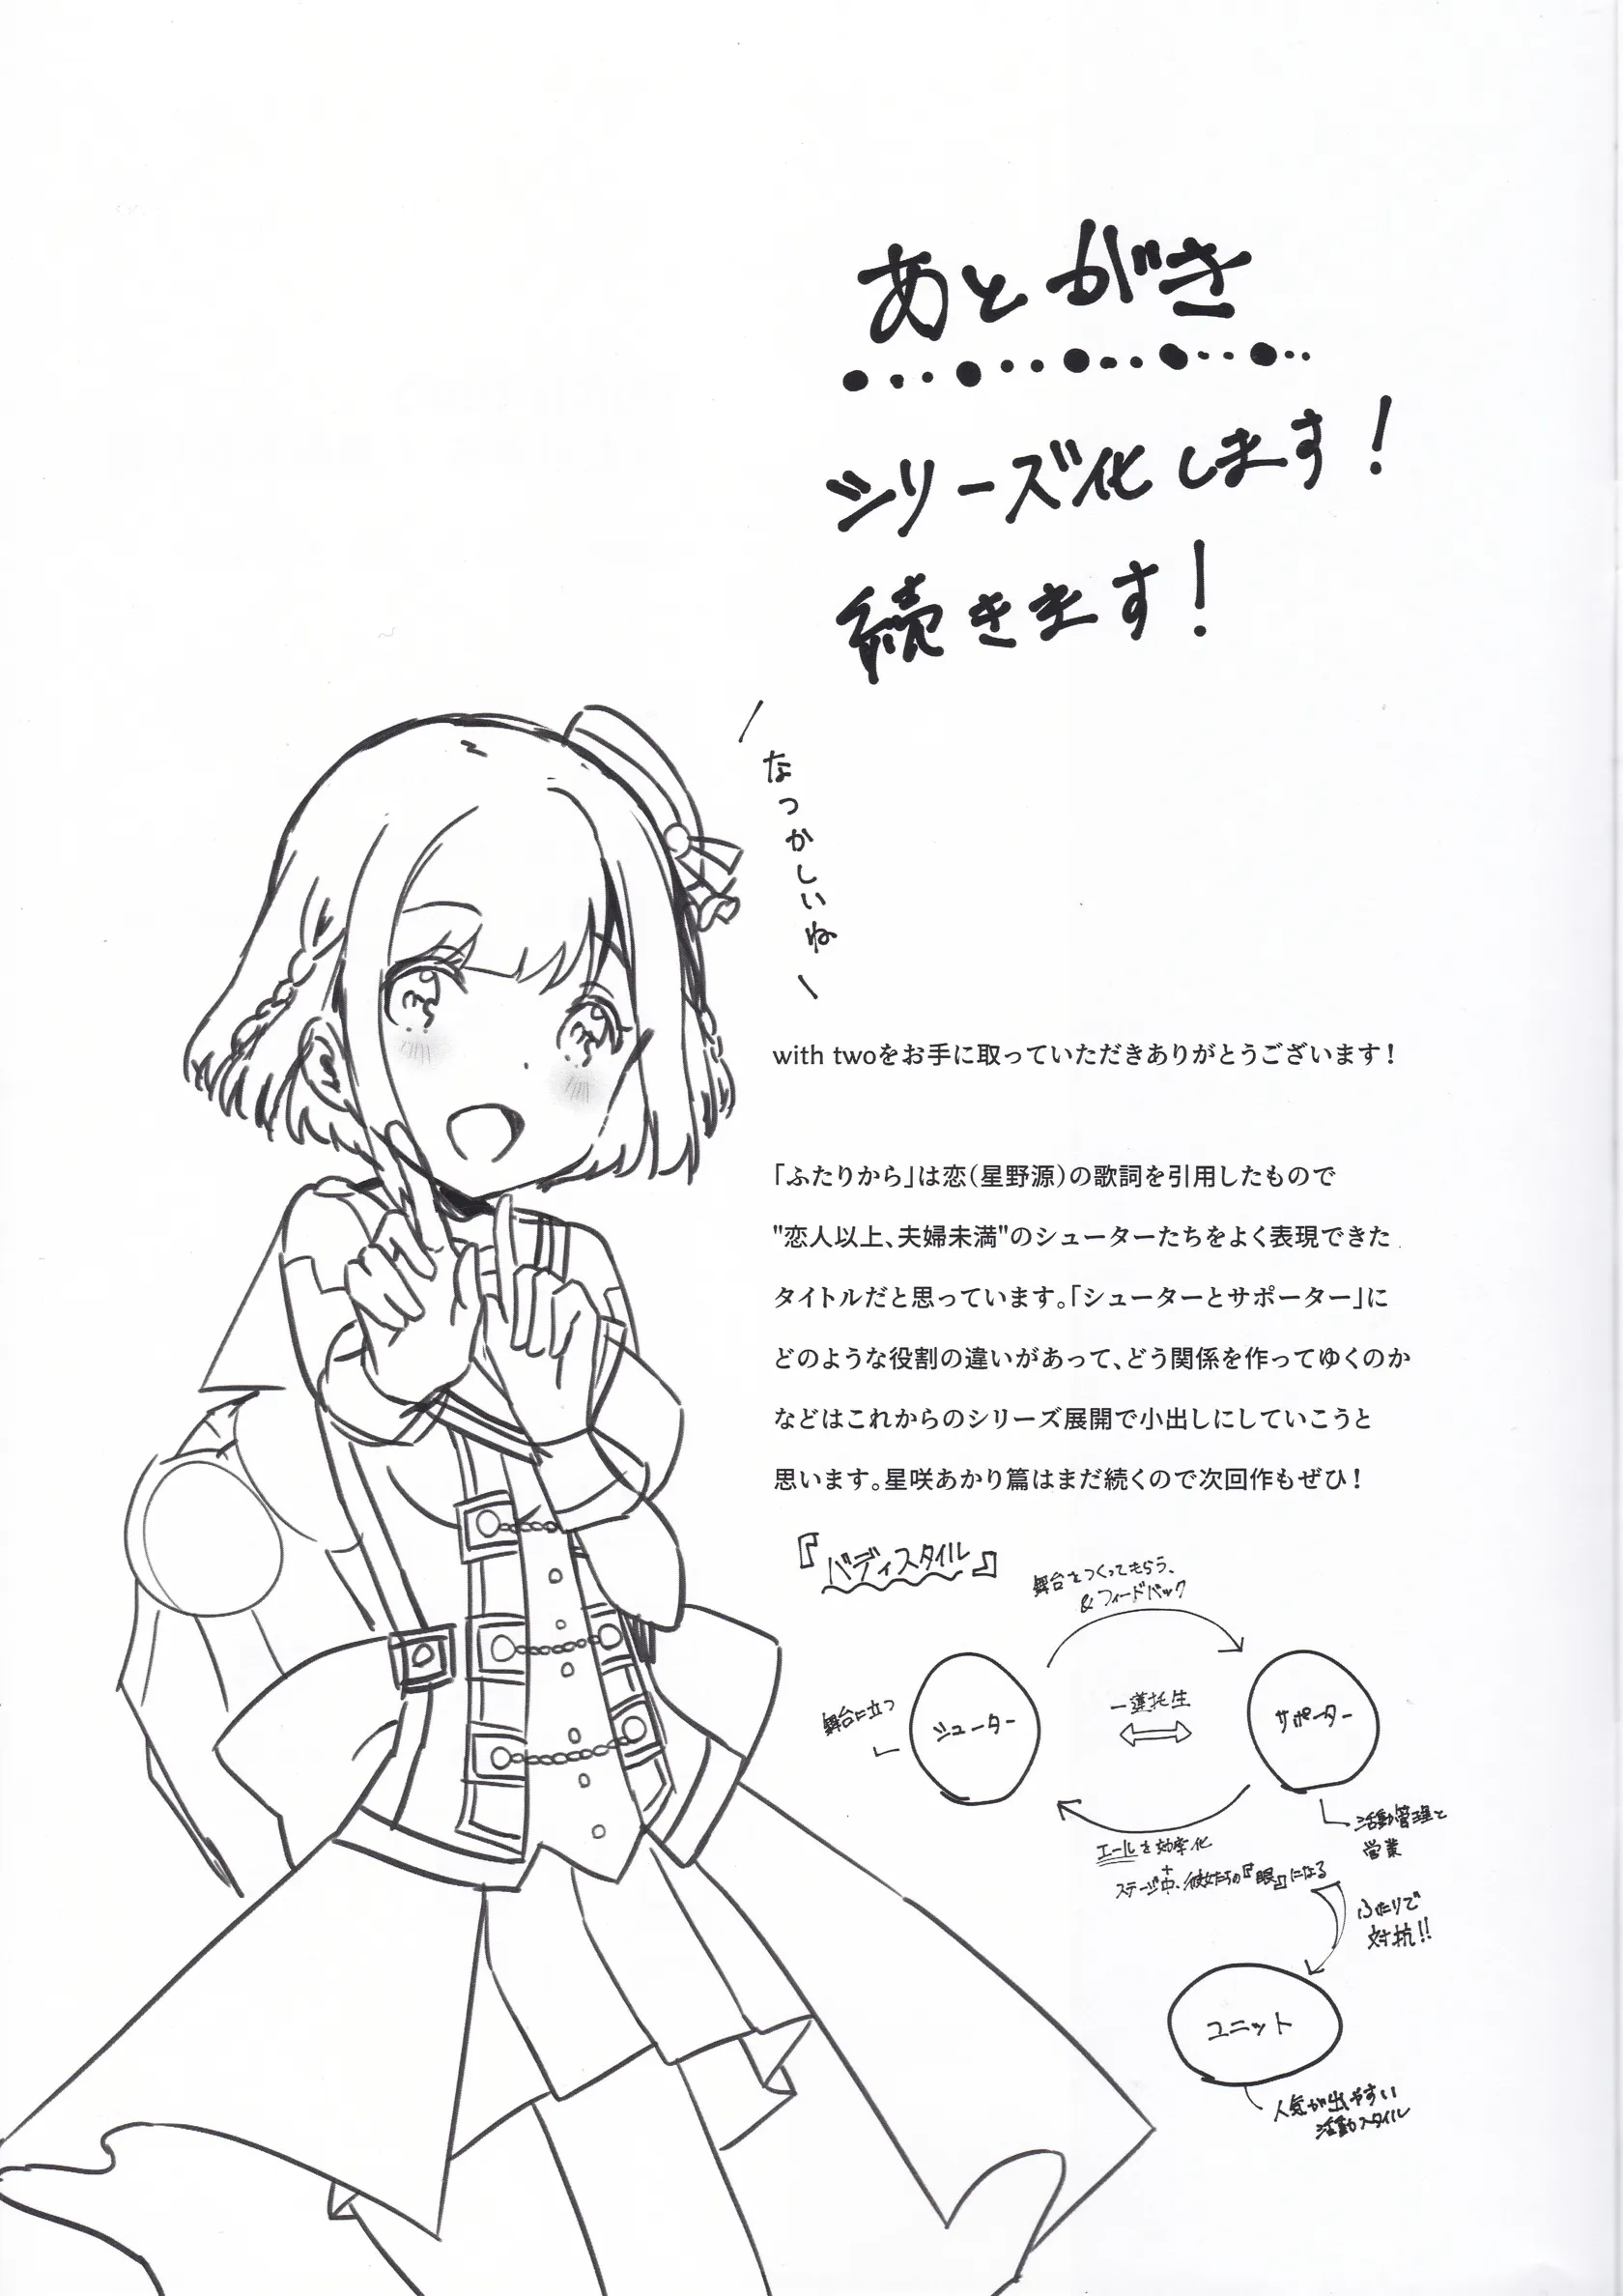 あとがき
シリーズ化します！
続きます！
なつかしいね
with twoをお手に取っていただきありがとうございます！
「ふたりから」は恋（星野源）の歌詞を引用したもので
"恋人以上、夫婦未満"のシューターたちをよく表現できた
タイトルだと思っています。「シューターとサポーター」に
どのような役割の違いがあって、どう関係を作ってゆくのか
などはこれからのシリーズ展開で小出しにしていこうと
思います。星咲あかり篇はまだ続くので次回作もぜひ！
『バディスタイル』
舞台をつくってもらう、
&フィードバック
舞台に立つ
シューター
一蓮托生
サポーター
活動管理と
営業
エールを効率化
+
ステージ中、彼女たちの『眼』になる
ふたりで
対抗!!
ユニット
人気が出やすい
活動スタイル